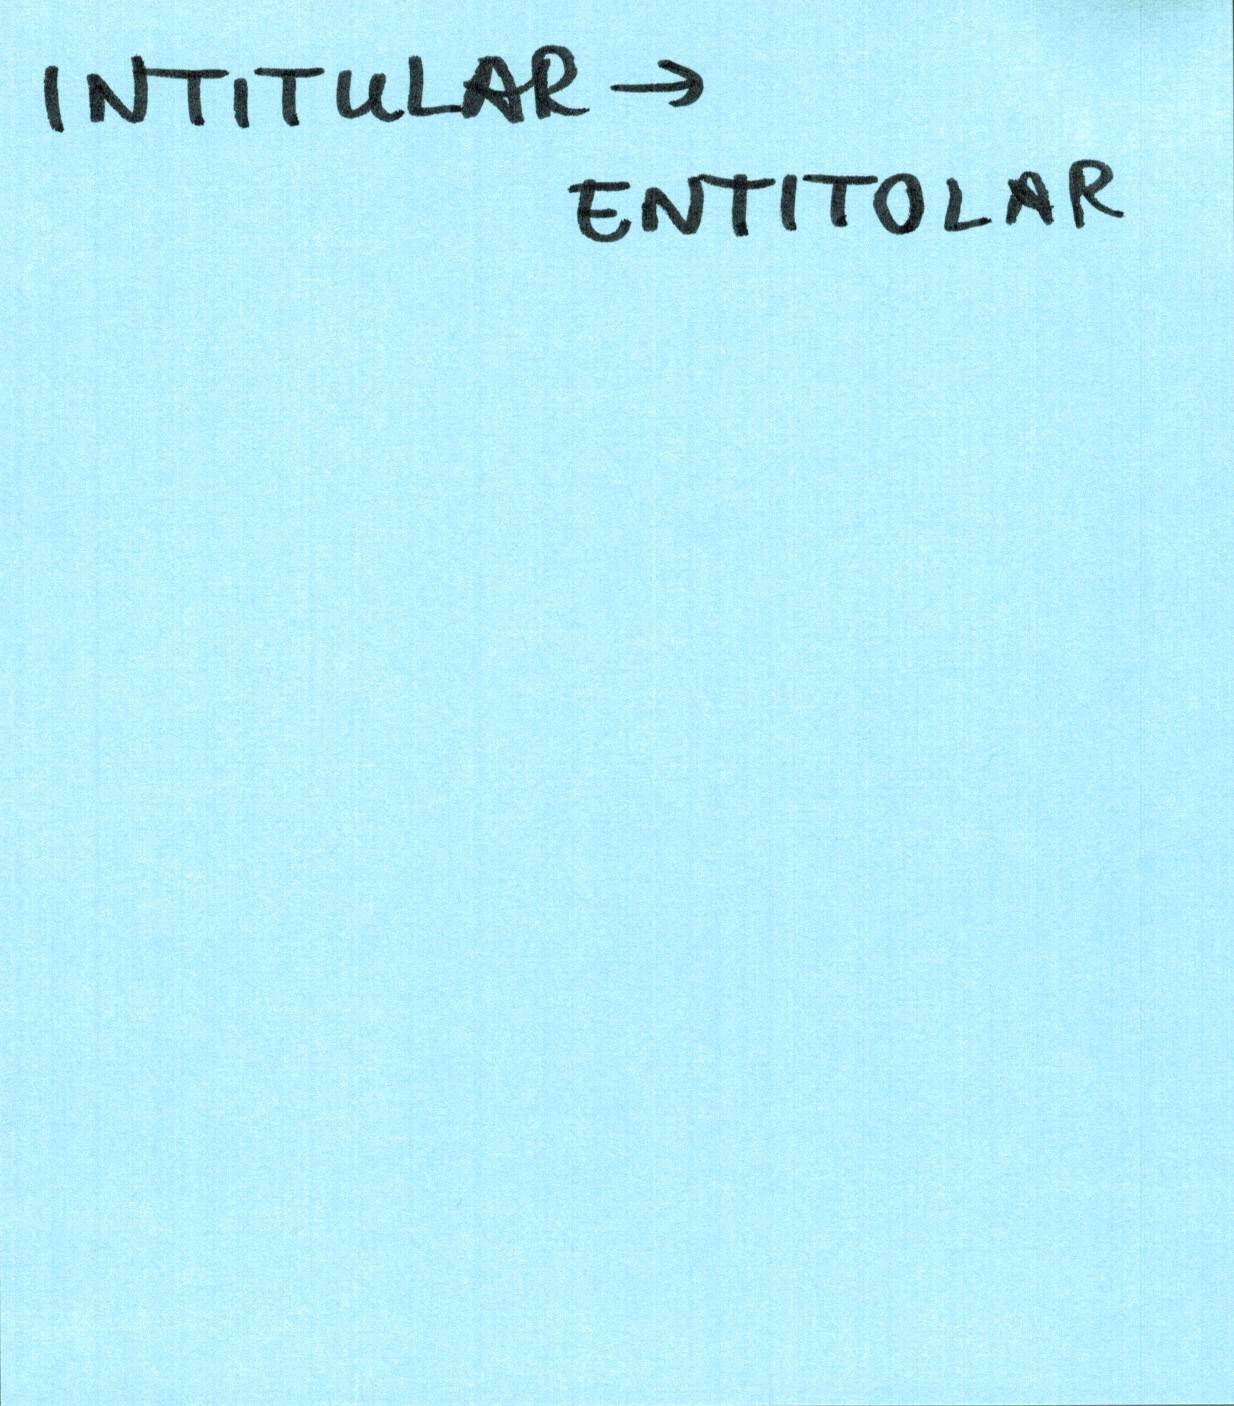 INTITULAR →
ENTITOLAR